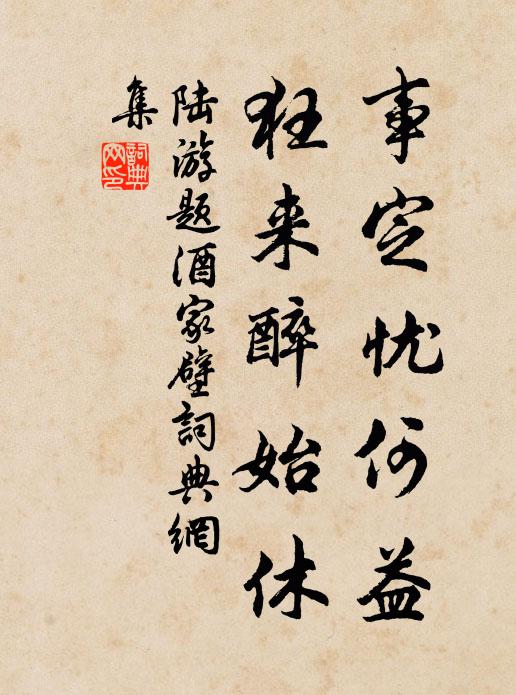 事定忧何益
狂来醉始休
陆游题酒家壁詞典網
集
詞典
网印